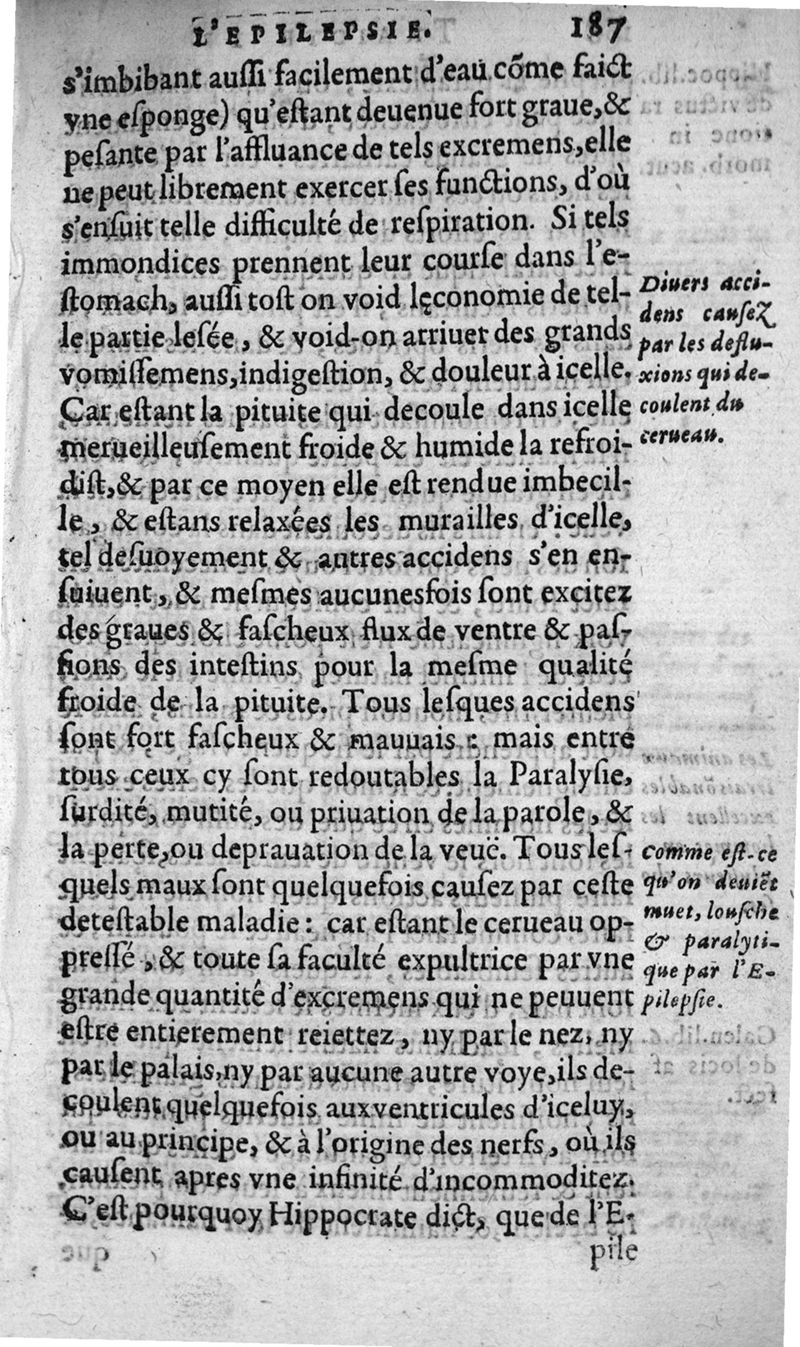 L'EPILEPSIE. 187
s'imbibant auſſi facilement d'eau cõme faict
vne eſponge) qu'eſtant deuenue fort graue,&
peſante par l'affluance de tels excremens,elle
ne peut librement exercer ſes functions, d'où
s'enſuit telle difficulté de reſpiration. Si tels
immondices prennent leur courſe dans l'e-
ſtomach, auſſi toſt on void lęconomie de tel-
le partie leſée, & void-on arriuer des grands
vomiſſemens,indigeſtion, & douleur à icelle.
Car eſtant la pituite qui decoule dans icelle
merueilleuſement froide & humide la refroi-
diſt,& par ce moyen elle eſt rendue imbecil-
le, & eſtans relaxées les murailles d'icelle,
tel deſuoyement & autres accidens s'en en-
ſuiuent, & meſmes aucunesfois ſont excitez
des graues & faſcheux flux de ventre & paſ-
ſions des inteſtins pour la meſme qualité
froide de la pituite. Tous leſques accidens
ſont fort faſcheux & mauuais : mais entre
tous ceux cy ſont redoutables la Paralyſie,
ſurdité, mutité, ou priuation de la parole, &
la perte,ou deprauation de la veuë. Tous leſ-
quels maux ſont quelquefois cauſez par ceſte
deteſtable maladie: car eſtant le cerueau op-
preſſé, & toute ſa faculté expultrice par vne
grande quantité d'excremens qui ne peuuent
eſtre entierement reiettez, ny par le nez, ny
par le palais,ny par aucune autre voye,ils de-
coulent quelquefois aux ventricules d'iceluy,
ou au principe, & à l'origine des nerfs, où ils
cauſent apres vne infinité d'incommoditez.
C'eſt pourquoy Hippocrate dict, que de l'E-
pile
Diuers acci-
dens cauſez
par les deflu-
xions qui de-
coulent du
cerueau.
comme eſt-ce
qu'on deuiẽt
muet, louſche
& paralyti-
que par l'E-
pilepſie.